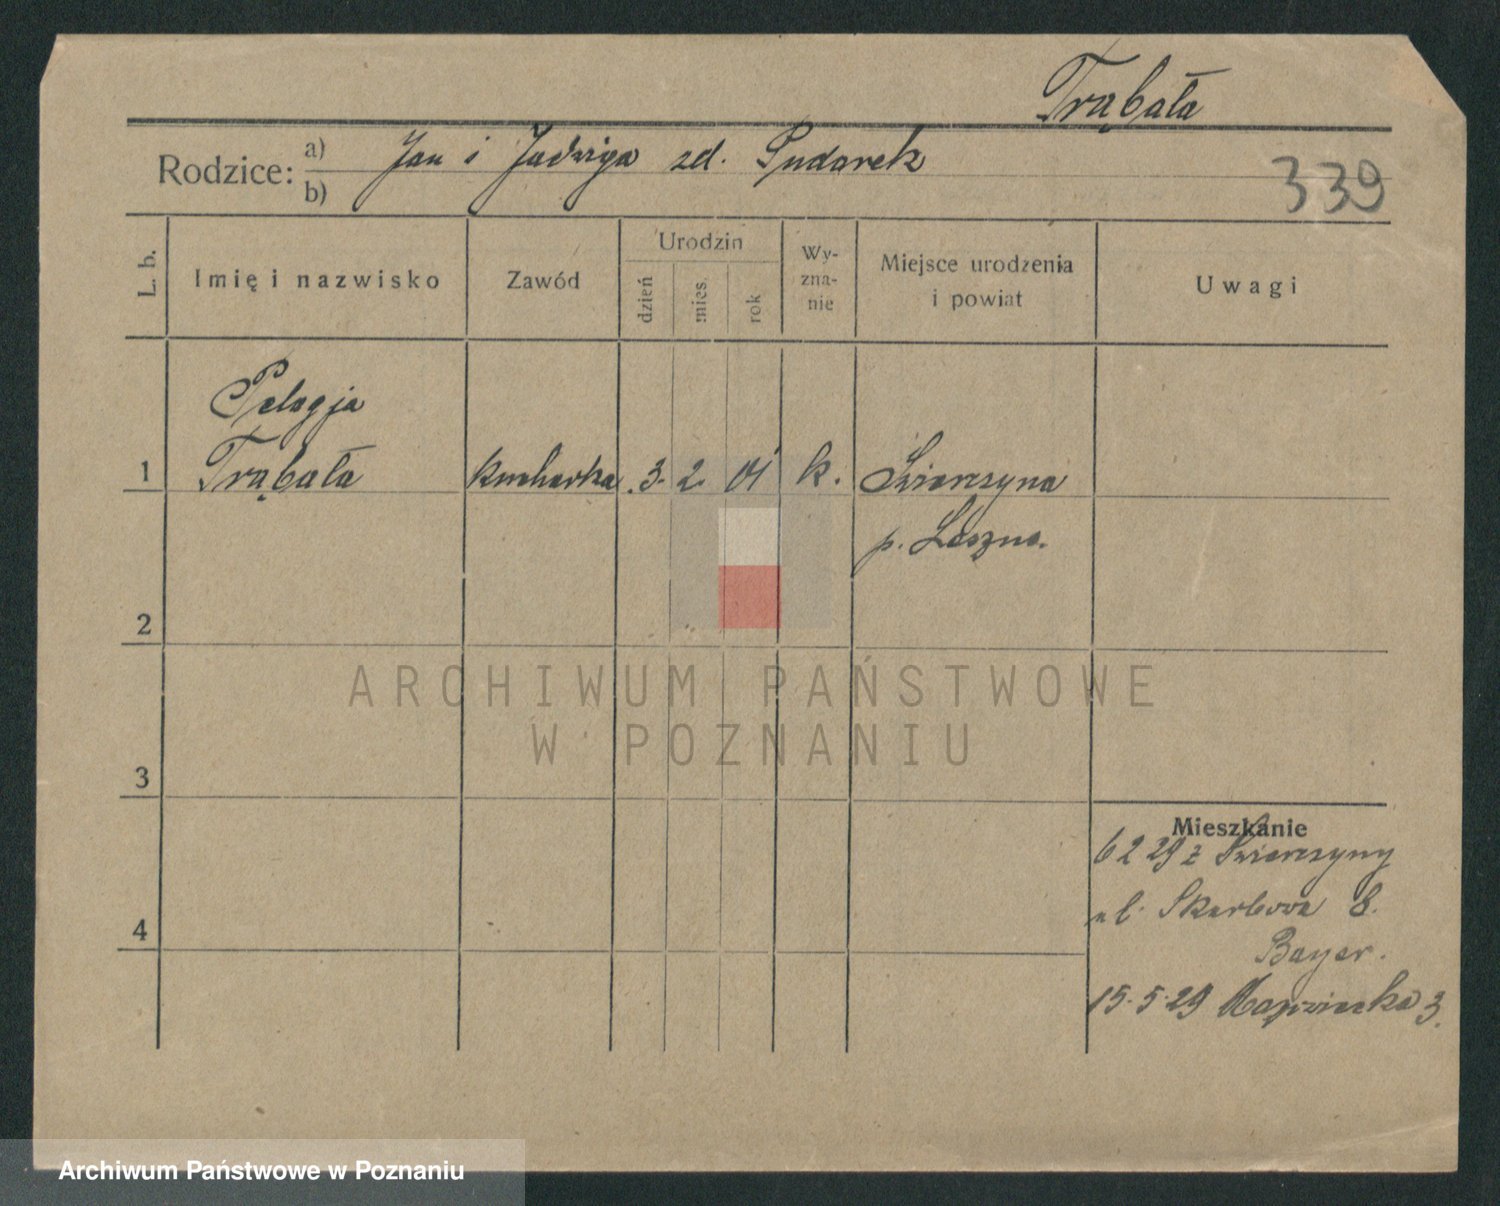 Trąbała
Rodzice: a) Jan i Jadwiga zd. Pudarek
b)
339
L. b.
Imię i nazwisko
Zawód
Urodzin
dzień
mies.
rok
Wy-
zna-
nie
Miejsce urodzenia
i powiat
Uwagi
Pelagja
1 Trąbała kucharka 3. 2. 01 k. Świerczyna
p. Leszno.
2
ARCHIWUM PAŃSTWOWE
W POZNANIU
3
Mieszkanie
6 2 29 z Świerczyny
ul. Skarbowa 8.
4
Bayer.
15.5.29 3.
Archiwum Państwowe w Poznaniu